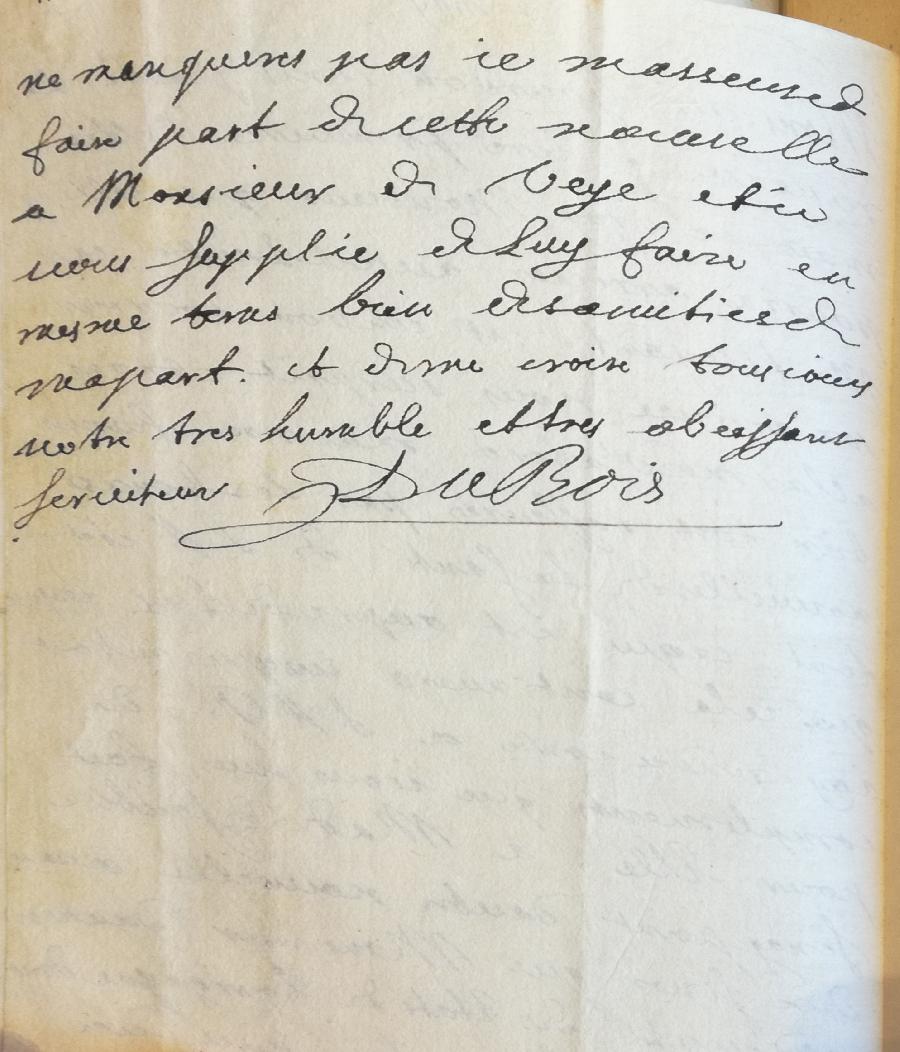 ne manqueres pas ie masseure d
faire part de cette nouuelle
a Monsieur de Vege et ie
vous supplie de Luy faire en
mesme tems bien des amities de
ma part. et de me croire tousiours
votre tres humble et tres obeissant
seruiteur DuBois